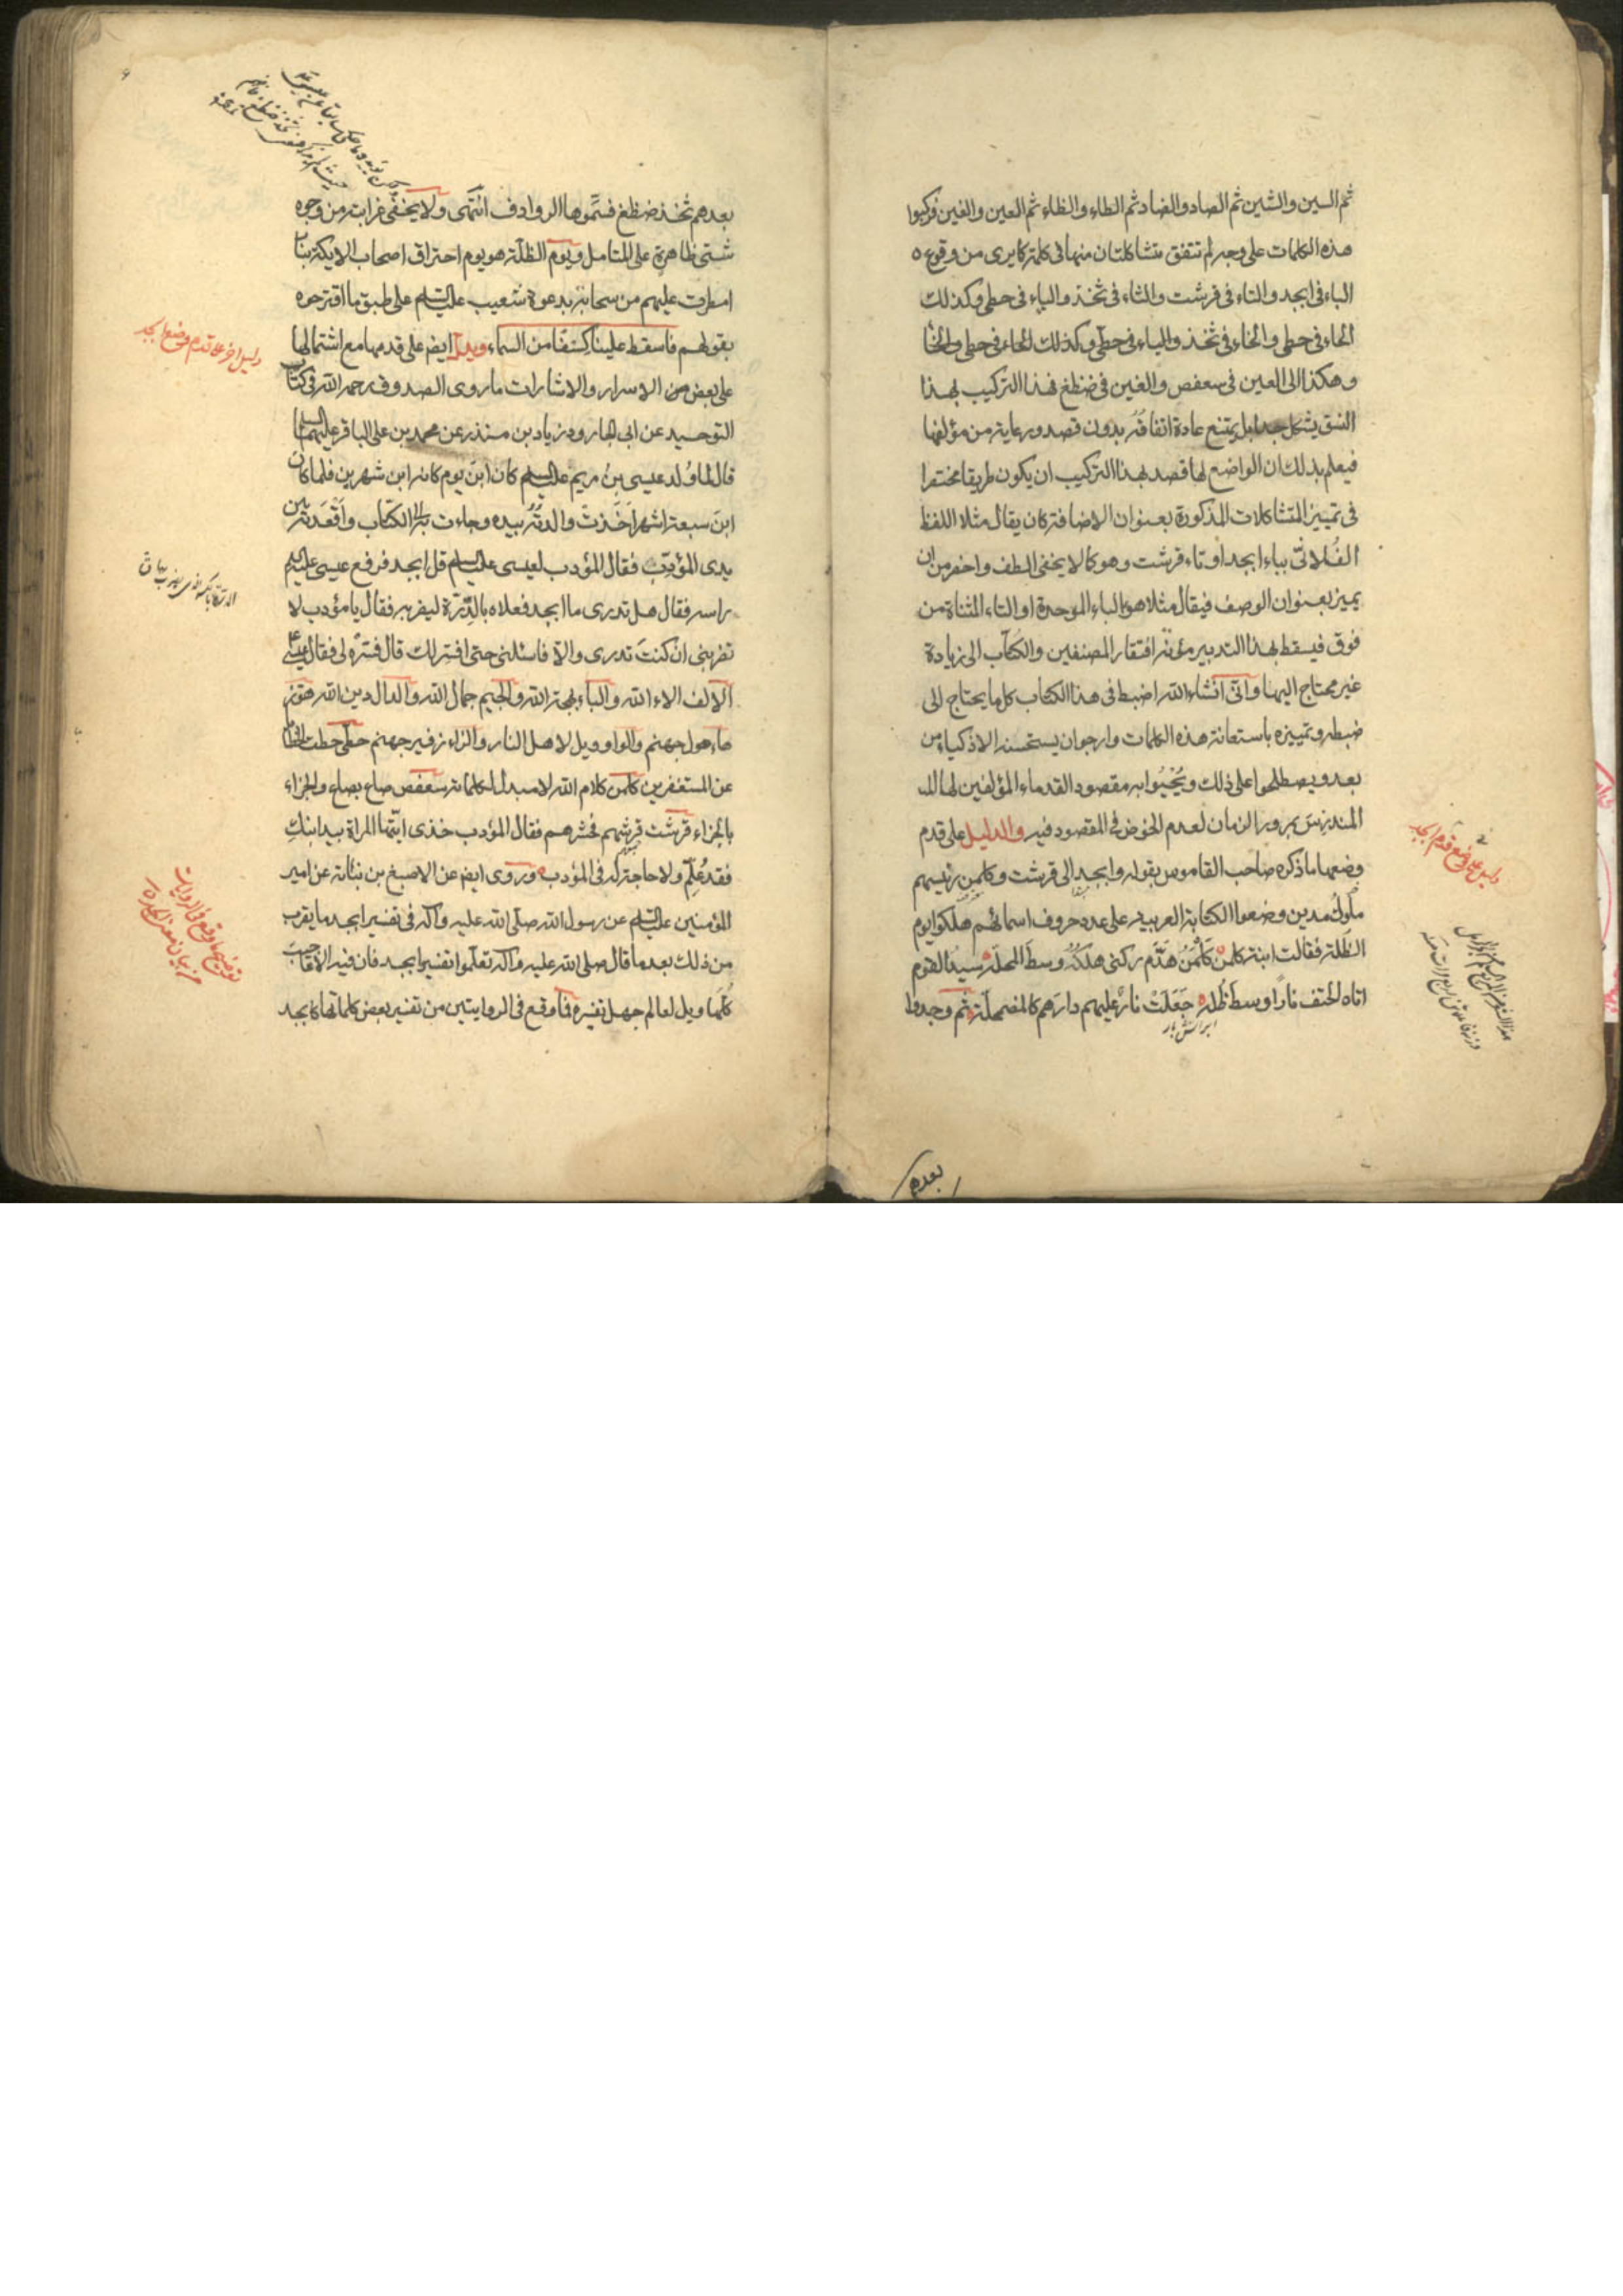 ثم السين والشين ثم الصاد والضاد ثم الطاء والظاء ثم العين والغين فركبوا
هذه الكلمات على وجه لم تتفق متشاكلتان منها فى كلمة كما يرى من وقوع
الباء فى ابجد والتاء فى قرشت والثاء فى ثخذ والياء فى حطى وكذلك
الحاء فى حطى والخاء فى ثخذ والياء فى حطى وكذلك الحاء فى حطى والخا
وهكذا الى العين فى سعفص والغين فى ضظغ فهذا التركيب بهذا
النسق يشكل جدا بل يمتنع عادة اتفاقه بدون قصد ورعاية من مؤلفها
فيعلم بذلك ان الواضع لها قصد بهذا التركيب ان يكون طريقا مختصرا
فى تمييز المتشاكلات المذكورة بعنوان الاضافة كان يقال مثلا اللفظ
الفُلانىّ بباء ابجد او تاء قرشت وهو كما لا يخفى الطف واخصر من ان
يميز بعنوان الوصف فيقال مثلا هو بالباء الموحدة او التاء المثناة من
فوق فيسقط بهذا التدبير مؤنة افتقار المصنفين والكتّاب الى زيادة
غير محتاج اليها وانّى انشاء الله اضبط فى هذا الكتاب كل ما يحتاج الى
ضبطه وتمييزه باستعانة هذه الكلمات وارجو ان يستحسنه الاذكياء من
بعد ويصطلحوا على ذلك ويُحْيُوا به مقصود القدماء المؤلفين لها
المندرس بمرور الزمان لعدم الخوض فى المقصود فيه والدليل على قدم
وضعها ما ذكره صاحب القاموس بقوله وابجد الى قرشت وكلمن رئيسهم
ملوكُ مدين وضعوا الكتابة العربية على عدد حروف اسمائهم هلكوا يوم
الظّلة فقالت ابنة كلمن كَلَمَنُ هَدَّمَ ركنى هلكُهُ وسطَ المحلّة سيدُ القوم
اتاه الحتف نارًا وسطَ ظُلة جُعَلَتْ نارٌ عليهم دارَهم كالمضمحلّة ثم وجدوا
ابر آتش بار
بعدهم
دليل على قدم وضع ابجد
بعدهم ثخذ ضظغ فسمّوها الروادف انتهى ولا يخفى غرابته من وجوه
شتى ظاهرة على المتامل ويوم الظلّة هو يوم احتراق اصحاب الايكة بنار
امطرت عليهم من سحابة بدعوة شعيب عليه السلم على طبق ما اقترحوه
بقولهم فاسقط علينا كِسَفًا من السماء ويدلّ ايضا على قدمها مع اشتمالها
على بعض من الاسرار والاشارات ما روى الصدوق رحمه الله فى كتاب
التوحيد عن ابى الجارود زياد بن منذر عن محمد بن على الباقر عليهما السلام
قال لما وُلد عيسى بنُ مريم عليه السلم كان ابنَ يوم كانه ابن شهرين فلما كان
ابنَ سبعة اشهر اَخَذتْ والدتُهُ بيده وجاءت به الى الكتّاب واَقْعَدَته بين
يدى المؤدِّب فقال المؤدب لعيسى عليه السلم قل ابجد فرفع عيسى عليه السلم
راسه فقال هل تدرى ما ابجد فعلاه بالدِّرّة ليضربه فقال يا مؤدب لا
تضربنى ان كنتَ تدرى والّا فاسئلنى حتى افسّر لك قال فسّره لى فقال عيسى
الالف الاء الله والباء بهجة الله والجيم جمال الله والدال دين الله هوّز
هاء هول جهنم والواو ويل لاهل النار والزاء زفير جهنم حطّى حطت الخطايا
عن المستغفرين كلمن كلام الله لا مبدل لكلماته سعفص صاع بصاع والجزاء
بالجزاء قرشت قرشهم فحشرهم فقال المؤدب خذى ايّتها المراة بيد ابنكِ
فقد عُلّم ولا حاجة له فى المؤدب وروى ايضا عن الاصبغ بن نباتة عن امير
المؤمنين عليه السلم عن رسول الله صلّى الله عليه وآله فى تفسير ابجد ما يقرب
من ذلك بعد ما قال صلى الله عليه وآله تعلّموا تفسير ابجد فان فيه الاعاجيب
كُلَّها ويل لعالم جهل تفسيره فما وقع فى الروايتين من تفسير بعض كلماتها كابجد
دليل اخر على قدم وضع ابجد
توضيح ما وقع فى الروايات